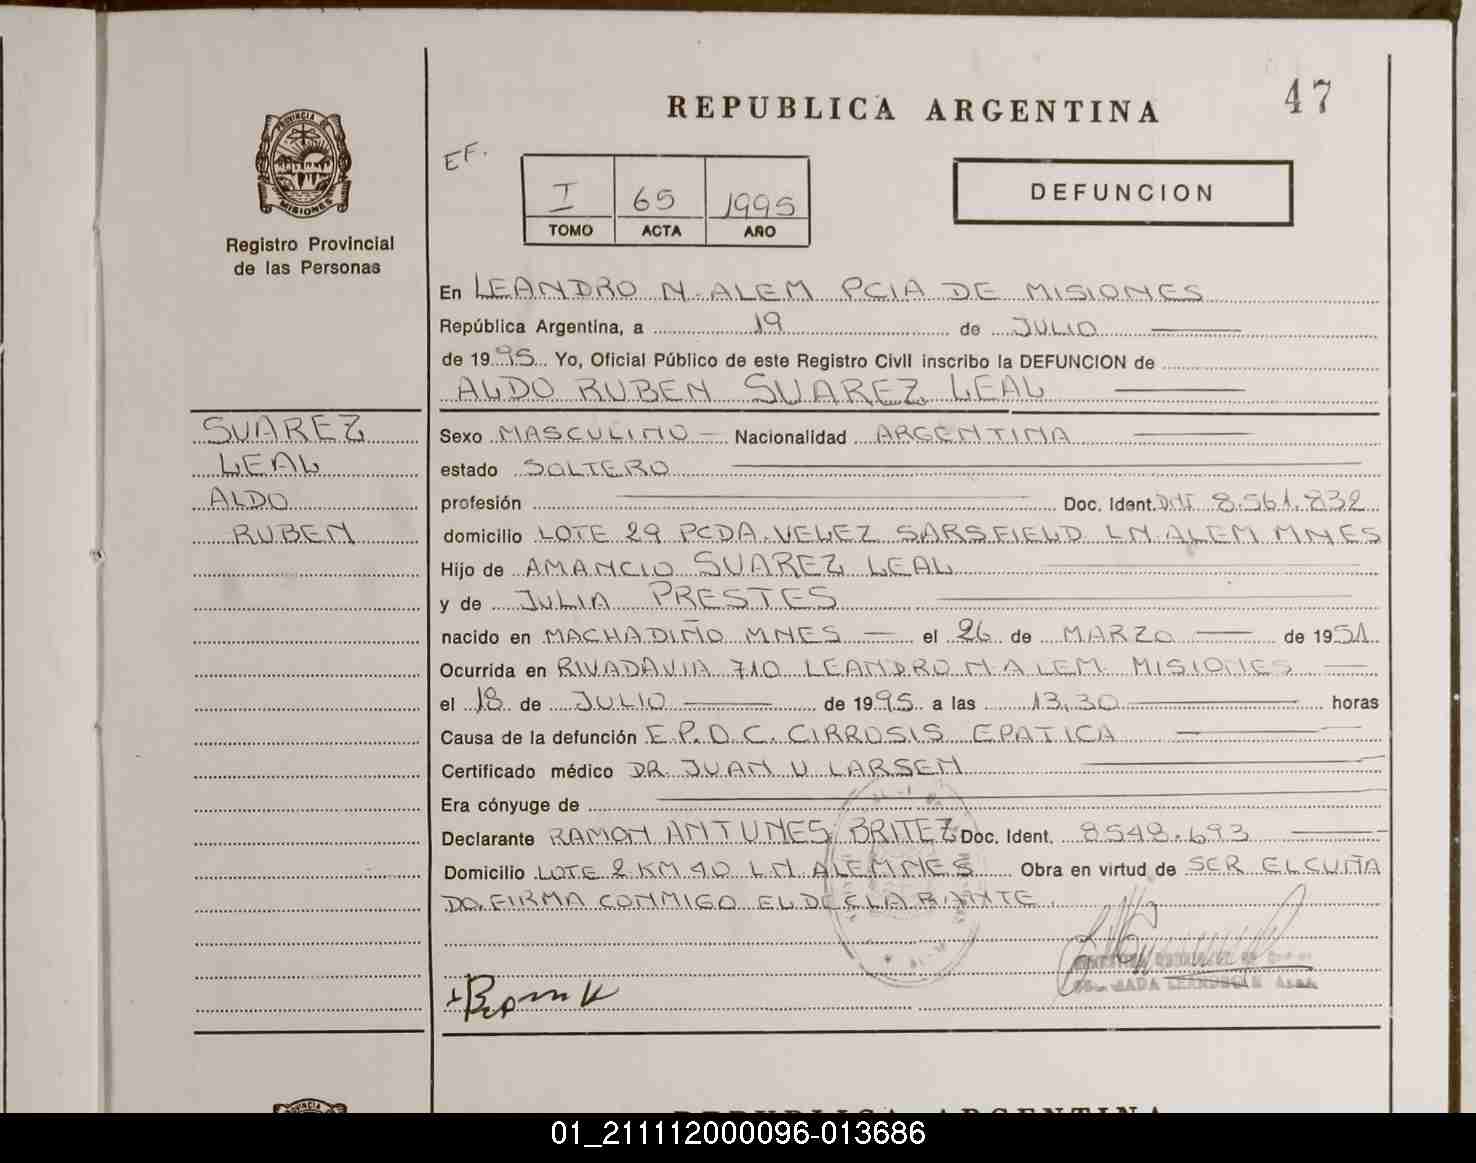 47
REPUBLICA ARGENTINA
EF.
I 65 1995
TOMO ACTA AÑO
DEFUNCION
PROVINCIA DE
MISIONES
Registro Provincial
de las Personas
En LEANDRO N. ALEM PCIA DE MISIONES
República Argentina, a 19 de JULIO
de 1995 Yo, Oficial Público de este Registro Civil inscribo la DEFUNCION de
ALDO RUBEN SUAREZ LEAL
SUAREZ
LEAL
ALDO
RUBEN
Sexo MASCULINO Nacionalidad ARGENTINA
estado SOLTERO
profesión Doc. Ident. DNI 8.561.832
domicilio LOTE 29 PCDA. VELEZ SARSFIELD LN. ALEM MNES
Hijo de AMANCIO SUAREZ LEAL
y de JULIA PRESTES
nacido en MACHADIÑO MNES el 26 de MARZO de 1951
Ocurrida en RIVADAVIA 710 LEANDRO N. ALEM MISIONES
el 18 de JULIO de 1995 a las 13,30 horas
Causa de la defunción E.P.O.C. CIRROSIS EPATICA
Certificado médico DR. JUAN U LARSEN
Era cónyuge de
Declarante RAMON ANTUNES BRITEZ Doc. Ident. 8548.693
Domicilio LOTE 2 KM 40 LN ALEM MNES Obra en virtud de SER EL CUÑA
DO. FIRMA CONMIGO EL DECLARANTE.
REPUBLICA ARGENTINA
01_211112000096-013686